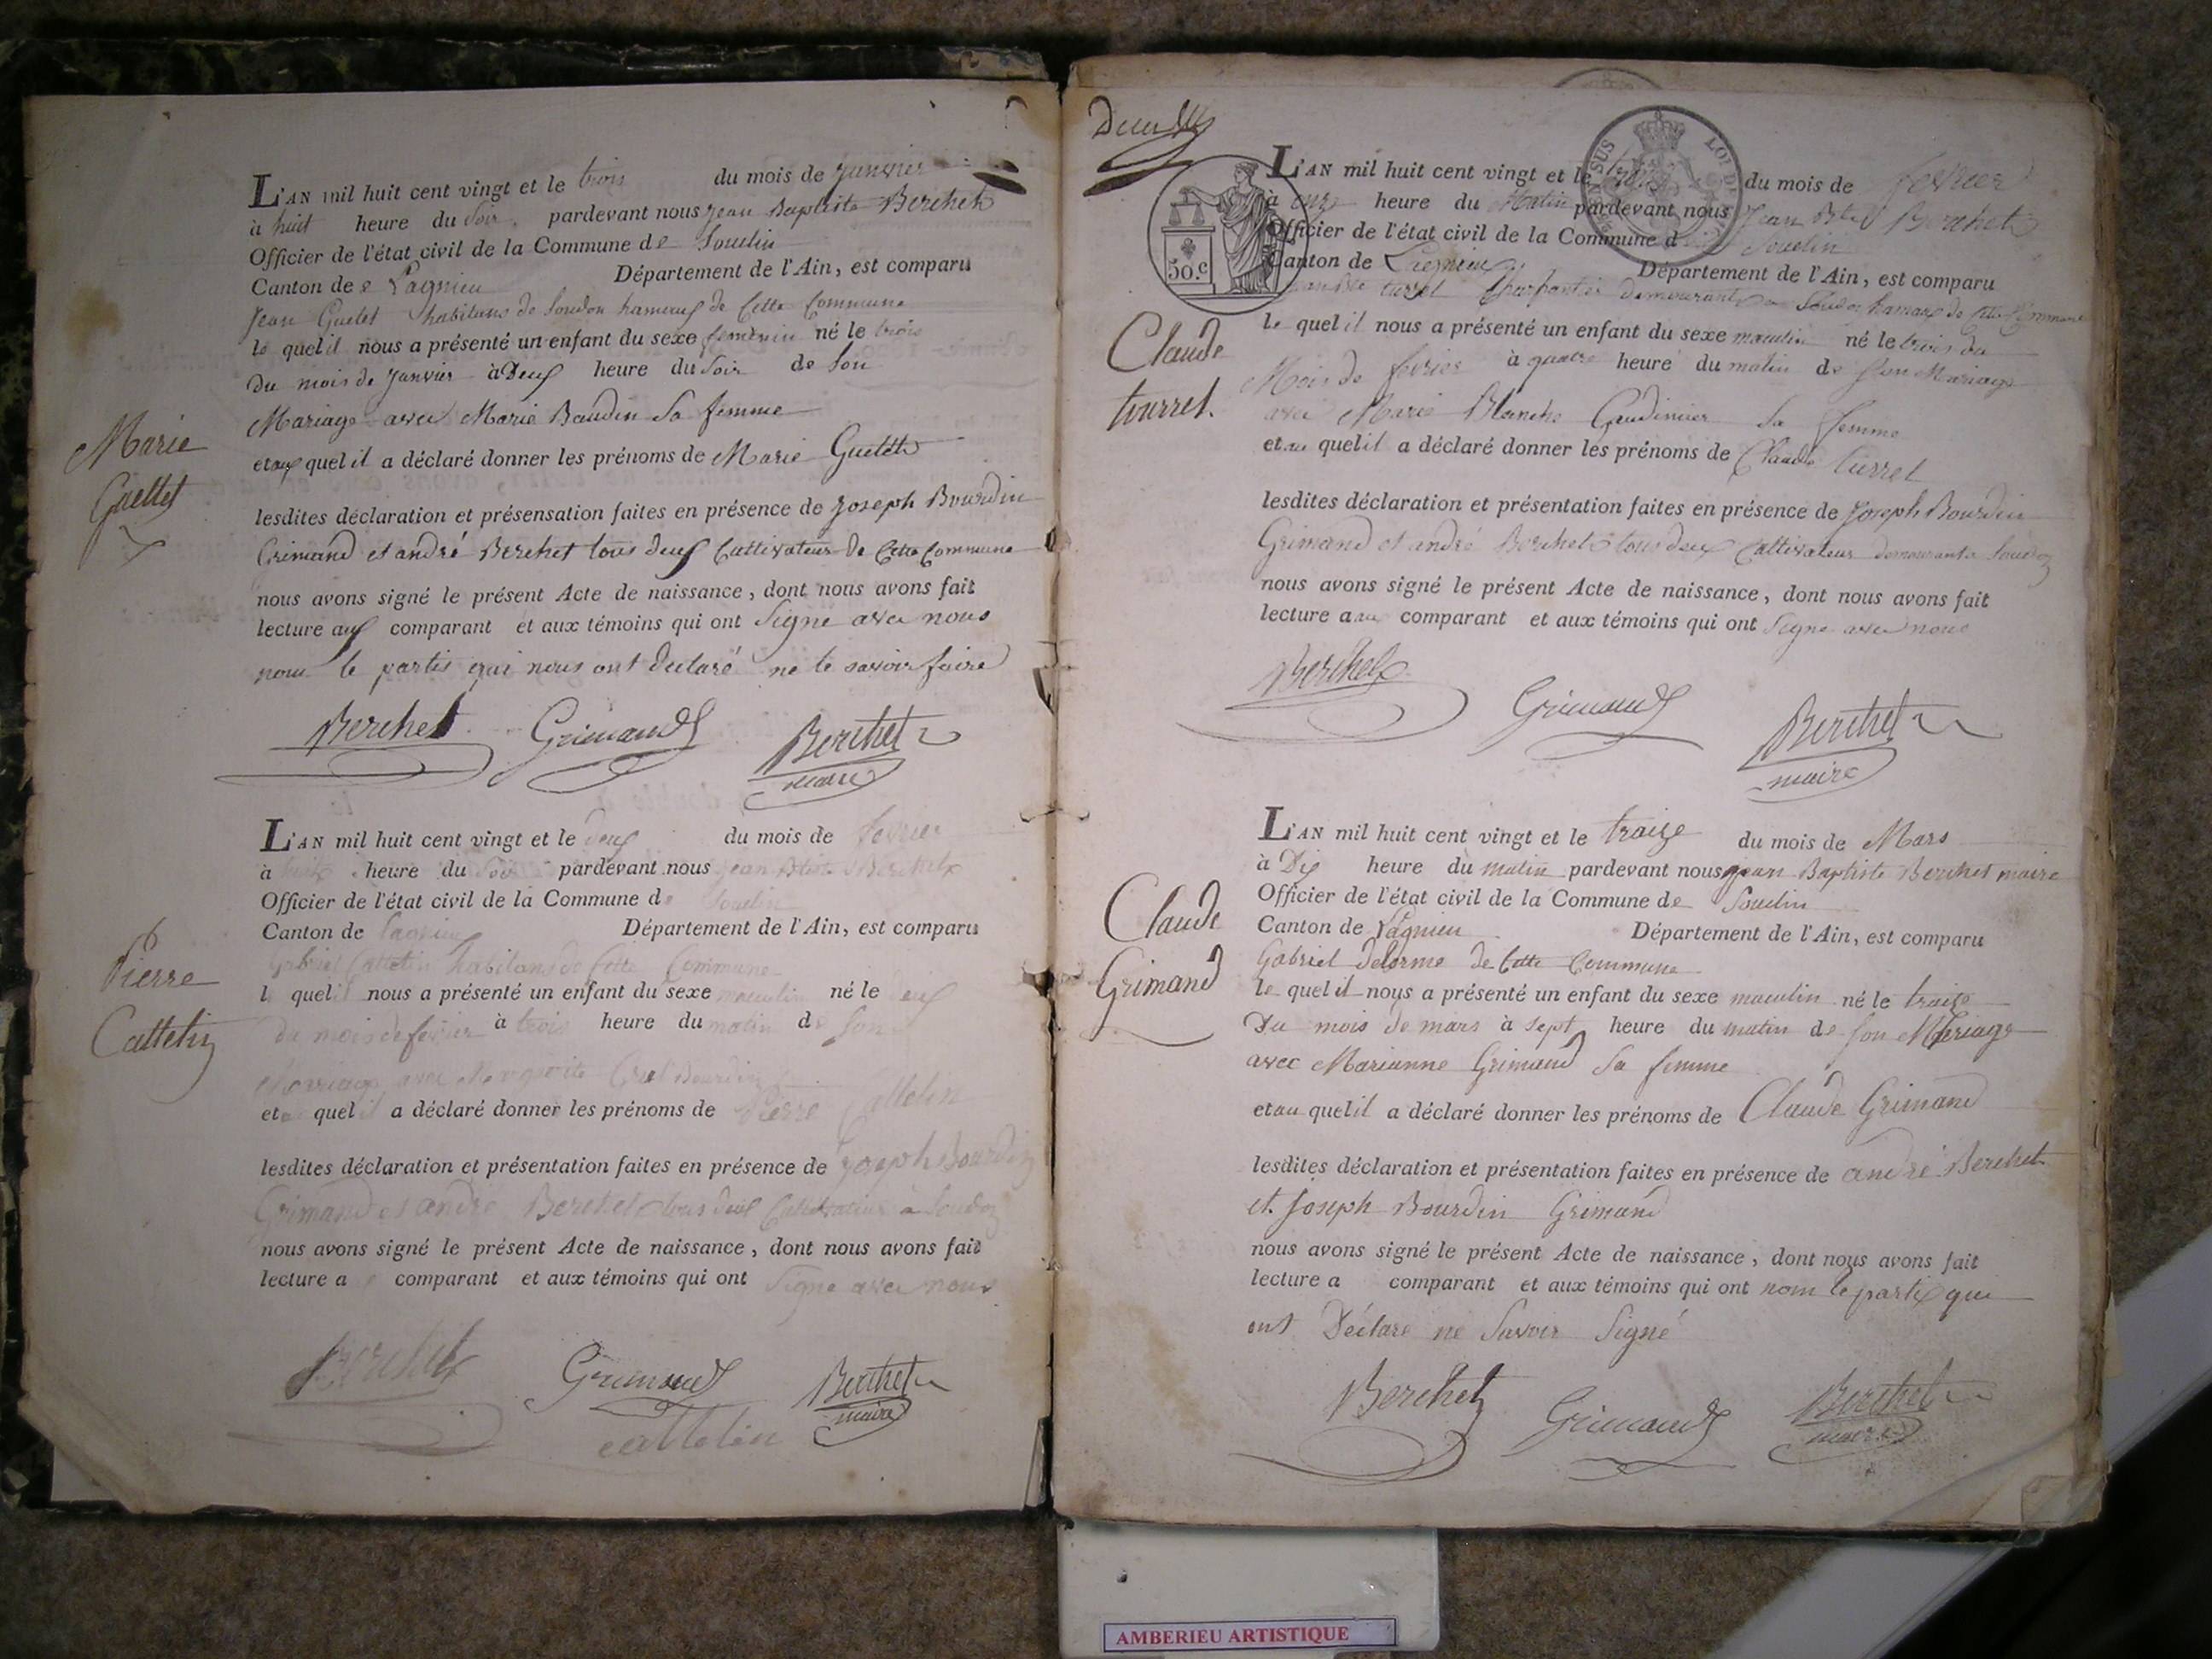 L'AN mil huit cent vingt et le trois du mois de Janvier
à huit heure du Soir pardevant nous Jean Baptiste Berthet
Officier de l'état civil de la Commune de Souclin
Canton de Lagnieu Département de l'Ain, est comparu
Jean Guelet habitans de Soudon hameaux de Cette Commune
le quel il nous a présenté un enfant du sexe femenin né le trois
Du mois de Janvier à Deux heure du Soir de Son
Mariage avec Marie Baudin Sa femme
et aux quel il a déclaré donner les prénoms de Marie Guelet
Marie
Guellet
lesdites déclaration et présensation faites en présence de Joseph Bourdin
Grimand et andré Berthet tous deux Cultivateur De Cette Commune
nous avons signé le présent Acte de naissance, dont nous avons fait
lecture aux comparant et aux témoins qui ont Signe avec nous
nom le partis qui nous ont Declaré ne le savoir faire
Berthet Grimand Berthet
maire
L'AN mil huit cent vingt et le deux du mois de fevrier
à huit heure du Soir pardevant nous Jean Btiste Berthet
Officier de l'état civil de la Commune de Souclin
Canton de Lagnieu Département de l'Ain, est comparu
Gabriel Cattelin habitans de Cette Commune
l quel il nous a présenté un enfant du sexe masculin né le deux
du mois de fevrier à trois heure du matin de Son
Mariage avec Bourdin
et au quel il a déclaré donner les prénoms de Pierre Cattelin
Pierre
Cattelin
lesdites déclaration et présentation faites en présence de Joseph Bourdin
Grimand et andré Berthet tous deux Cultivateur a Soudon
nous avons signé le présent Acte de naissance, dont nous avons fait
lecture a comparant et aux témoins qui ont Signe avec nous
Berthet Grimand Berthet
maire
cattelin
50.c
L'AN mil huit cent vingt et le trois du mois de fevrier
à onze heure du Matin pardevant nous Jean Bte Berthet
Officier de l'état civil de la Commune d Souclin
Canton de Lagnieu Département de l'Ain, est comparu
turrel Charpentier demeurant a Soudon hamaux de Cette Commune
le quel il nous a présenté un enfant du sexe masculin né le trois du
Mois de fevrier à quatre heure du matin de Son Mariage
avec Marie Blanche Gaudinier Sa femme
et au quel il a déclaré donner les prénoms de Claude turrel
Claude
tourrel.
lesdites déclaration et présentation faites en présence de Joseph Bourdin
Grimand et andré Berthet tous deux Cultivateur demeurant a Soudon
nous avons signé le présent Acte de naissance, dont nous avons fait
lecture aux comparant et aux témoins qui ont Signe avec nous
Berthet Grimand Berthet
maire
L'AN mil huit cent vingt et le traize du mois de Mars
à Dix heure du matin pardevant nous jean Baptiste Berthet maire
Officier de l'état civil de la Commune de Souclin
Canton de Lagnieu Département de l'Ain, est comparu
Gabriel Delorme de Cette Commune
le quel il nous a présenté un enfant du sexe masculin né le traize
Du mois de mars à sept heure du matin de Son Mariage
avec Marianne Grimand Sa femme
et au quel il a déclaré donner les prénoms de Claude Grimand
Claude
Grimand
lesdites déclaration et présentation faites en présence de andré Berthet
et Joseph Bourdin Grimand
nous avons signé le présent Acte de naissance, dont nous avons fait
lecture a comparant et aux témoins qui ont nom le partix qui
ont Déclare ne Savoir Signé
Berthet Grimand Berthet
maire
AMBERIEU ARTISTIQUE